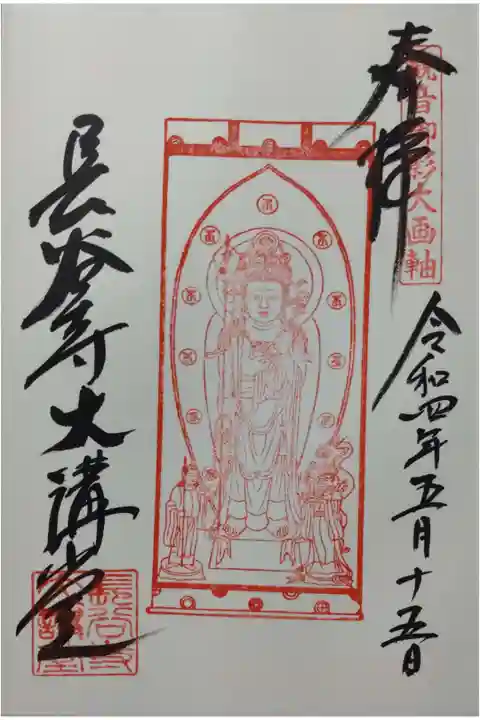 奉拝
観音御影大画軸
令和四年五月十五日
長谷寺大講堂